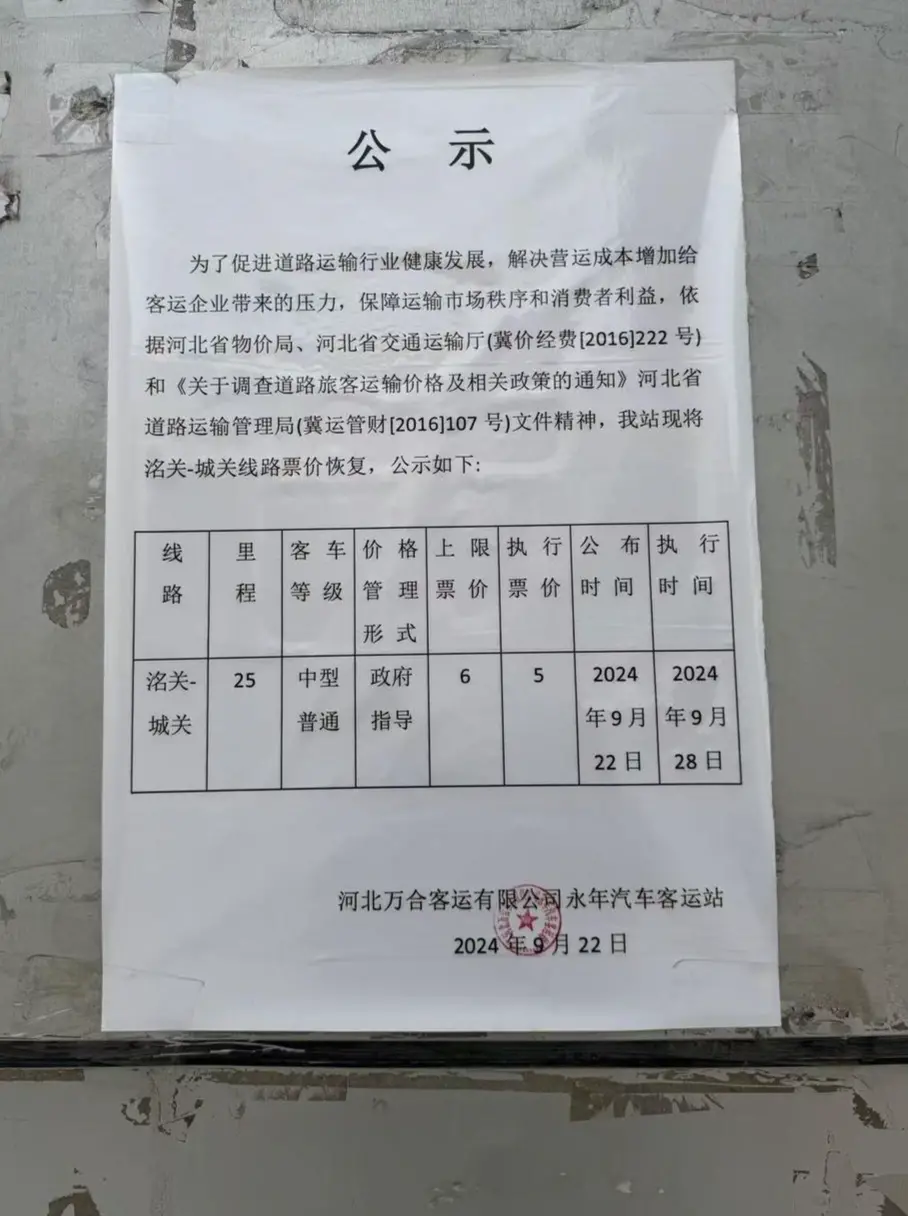 公 示
为了促进道路运输行业健康发展，解决营运成本增加给
客运企业带来的压力，保障运输市场秩序和消费者利益，依
据河北省物价局、河北省交通运输厅(冀价经费[2016]222 号)
和《关于调查道路旅客运输价格及相关政策的通知》河北省
道路运输管理局(冀运管财[2016]107 号)文件精神，我站现将
洺关-城关线路票价恢复，公示如下:
线路 里程 客车等级 价格管理形式 上限票价 执行票价 公布时间 执行时间
洺关-城关 25 中型普通 政府指导 6 5 2024年9月22日 2024年9月28日
河北万合客运有限公司永年汽车客运站
2024 年 9 月 22 日